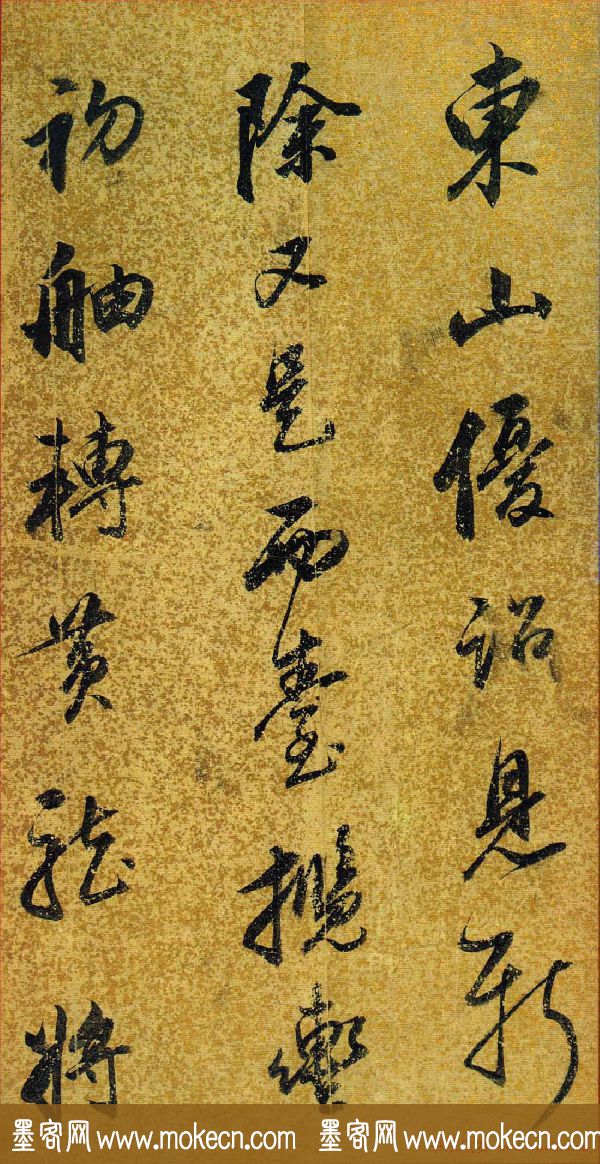 東山優詔見新
除又是西臺攬轡
初舳轉黃龍將
墨客网 www.mokecn.com 墨客网 www.mokecn.com